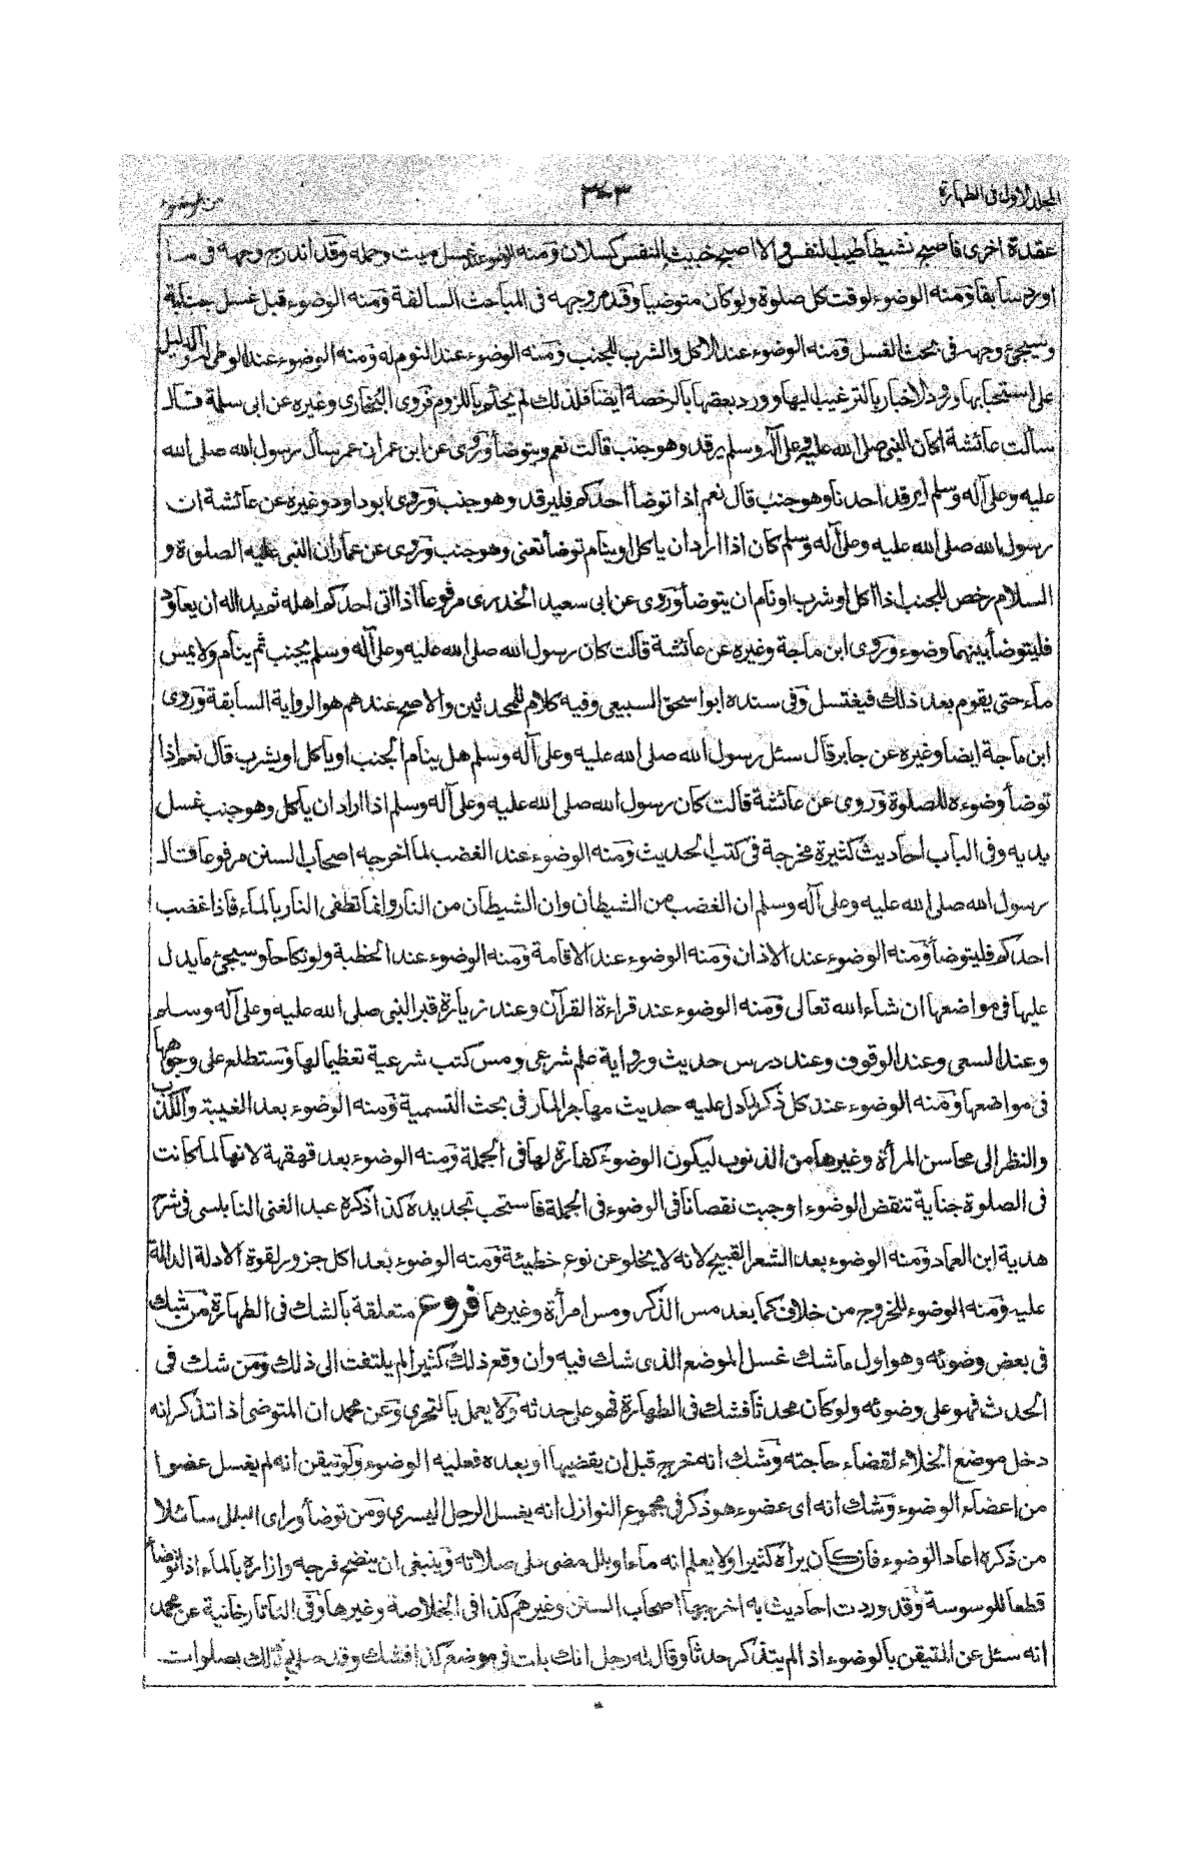 المجلد الاول فى الطهارة
٣٠٣
من الوضوء
عقدة اخرى فاصبح نشيطا طيب النفس والا اصبح خبيث النفس كسلان ومنه الوضوء عند غسل ميت وحمله وقد اندرج وجهه فى ما
اورد سابقا ومنه الوضوء لوقت كل صلوة ولو كان متوضيا وقد مر وجهه فى المباحث السالفة ومنه الوضوء قبل غسل جنابة
وسيجئ وجهه فى بحث الغسل ومنه الوضوء عند الاكل والشرب للجنب ومنه الوضوء عند النوم له ومنه الوضوء عند الوطى له والدليل
على استحبابها ورود الاخبار بالترغيب اليها وورد بعضها بالرخصة ايضا فلذلك لم يحكم باللزوم فروى البخارى وغيره عن ابى سلمة قال
سألت عائشة اكان النبى صلى الله عليه وعلى آله وسلم يرقد وهو جنب قالت نعم ويتوضأ وروى عن ابن عمر ان عمر سأل رسول الله صلى الله
عليه وعلى آله وسلم ايرقد احدنا وهو جنب قال نعم اذا توضأ احدكم فليرقد وهو جنب وروى ابو داود وغيره عن عائشة ان
رسول الله صلى الله عليه وعلى آله وسلم كان اذا اراد ان ياكل او ينام توضأ تعنى وهو جنب وروى عن عمار ان النبى عليه الصلوة و
السلام رخص للجنب اذا اكل او شرب او نام ان يتوضأ وروى عن ابى سعيد الخدرى مرفوعا اذا اتى احدكم اهله ثم بدا له ان يعاود
فليتوضأ بينهما وضوء وروى ابن ماجة وغيره عن عائشة قالت كان رسول الله صلى الله عليه وعلى آله وسلم يجنب ثم ينام ولا يمس
ماء حتى يقوم بعد ذلك فيغتسل وفى سنده ابو اسحق السبيعى وفيه كلام للمحدثين والاصح عندهم هو الرواية السابقة وروى
ابن ماجة ايضا وغيره عن جابر قال سئل رسول الله صلى الله عليه وعلى آله وسلم هل ينام الجنب او ياكل او يشرب قال نعم اذا
توضأ وضوءه للصلوة وروى عن عائشة قالت كان رسول الله صلى الله عليه وعلى آله وسلم اذا اراد ان يأكل وهو جنب غسل
يديه وفى الباب احاديث كثيرة مخرجة فى كتب الحديث ومنه الوضوء عند الغضب لما اخرجه اصحاب السنن مرفوعا قال
رسول الله صلى الله عليه وعلى آله وسلم ان الغضب من الشيطان وان الشيطان من النار وانما تطفى النار بالماء فاذا غضب
احدكم فليتوضأ ومنه الوضوء عند الاذان ومنه الوضوء عند الاقامة ومنه الوضوء عند الخطبة ولو نكاحا وسيجئ ما يدل
عليها فى مواضعها ان شاء الله تعالى ومنه الوضوء عند قراءة القرآن وعند زيارة قبر النبى صلى الله عليه وعلى آله وسلم
وعند السعى وعند الوقوف وعند درس حديث ورواية علم شرعى ومس كتب شرعية تعظيما لها وستطلع على وجوهها
فى مواضعها ومنه الوضوء عند كل ذكر لما دل عليه حديث مهاجر المار فى بحث التسمية ومنه الوضوء بعد الغيبة والكذب
والنظر الى محاسن المرأة وغيرها من الذنوب ليكون الوضوء كفارة لها فى الجملة ومنه الوضوء بعد قهقهة لانها لما كانت
فى الصلوة جناية تنقض الوضوء اوجبت نقصانا فى الوضوء فى الجملة فاستحب تجديده كذا ذكره عبد الغنى النابلسى فى شرح
هدية ابن العماد ومنه الوضوء بعد الشعر القبيح لانه لا يخلو عن نوع خطيئة ومنه الوضوء بعد اكل جزور لقوة الادلة الدالة
عليه ومنه الوضوء للخروج من خلاف كما بعد مس الذكر ومس امرأة وغيرهما فروع متعلقة بالشك فى الطهارة من شك
فى بعض وضوئه وهو اول ما شك غسل الموضع الذى شك فيه وان وقع ذلك كثيرا لم يلتفت الى ذلك ومن شك فى
الحدث فهو على وضوئه ولو كان محدثا فشك فى الطهارة فهو على حدثه ولا يعمل بالتحرى وعن محمد ان المتوضى اذا تذكر انه
دخل موضع الخلاء لقضاء حاجته وشك انه خرج قبل ان يقضيها او بعده فعليه الوضوء ولو تيقن انه لم يغسل عضوا
من اعضاء الوضوء وشك انه اى عضو هو ذكر فى مجموع النوازل انه يغسل الرجل اليسرى ومن توضأ وراى البلل سائلا
من ذكره اعاد الوضوء فان كان يراه كثيرا ولا يعلم انه ماء او بلل مضى على صلاته وينبغى ان ينضح فرجه وازاره بالماء اذا توضأ
قطعا للوسوسة وقد وردت احاديث به اخرجها اصحاب السنن وغيرهم كذا فى الخلاصة وغيرها وفى التاتارخانية عن محمد
انه سئل عن المتيقن بالوضوء اذا لم يتذكر حدثا وقال له رجل انك بلت فى موضع كذا فشك وقد صلى بعد ذلك بصلوات